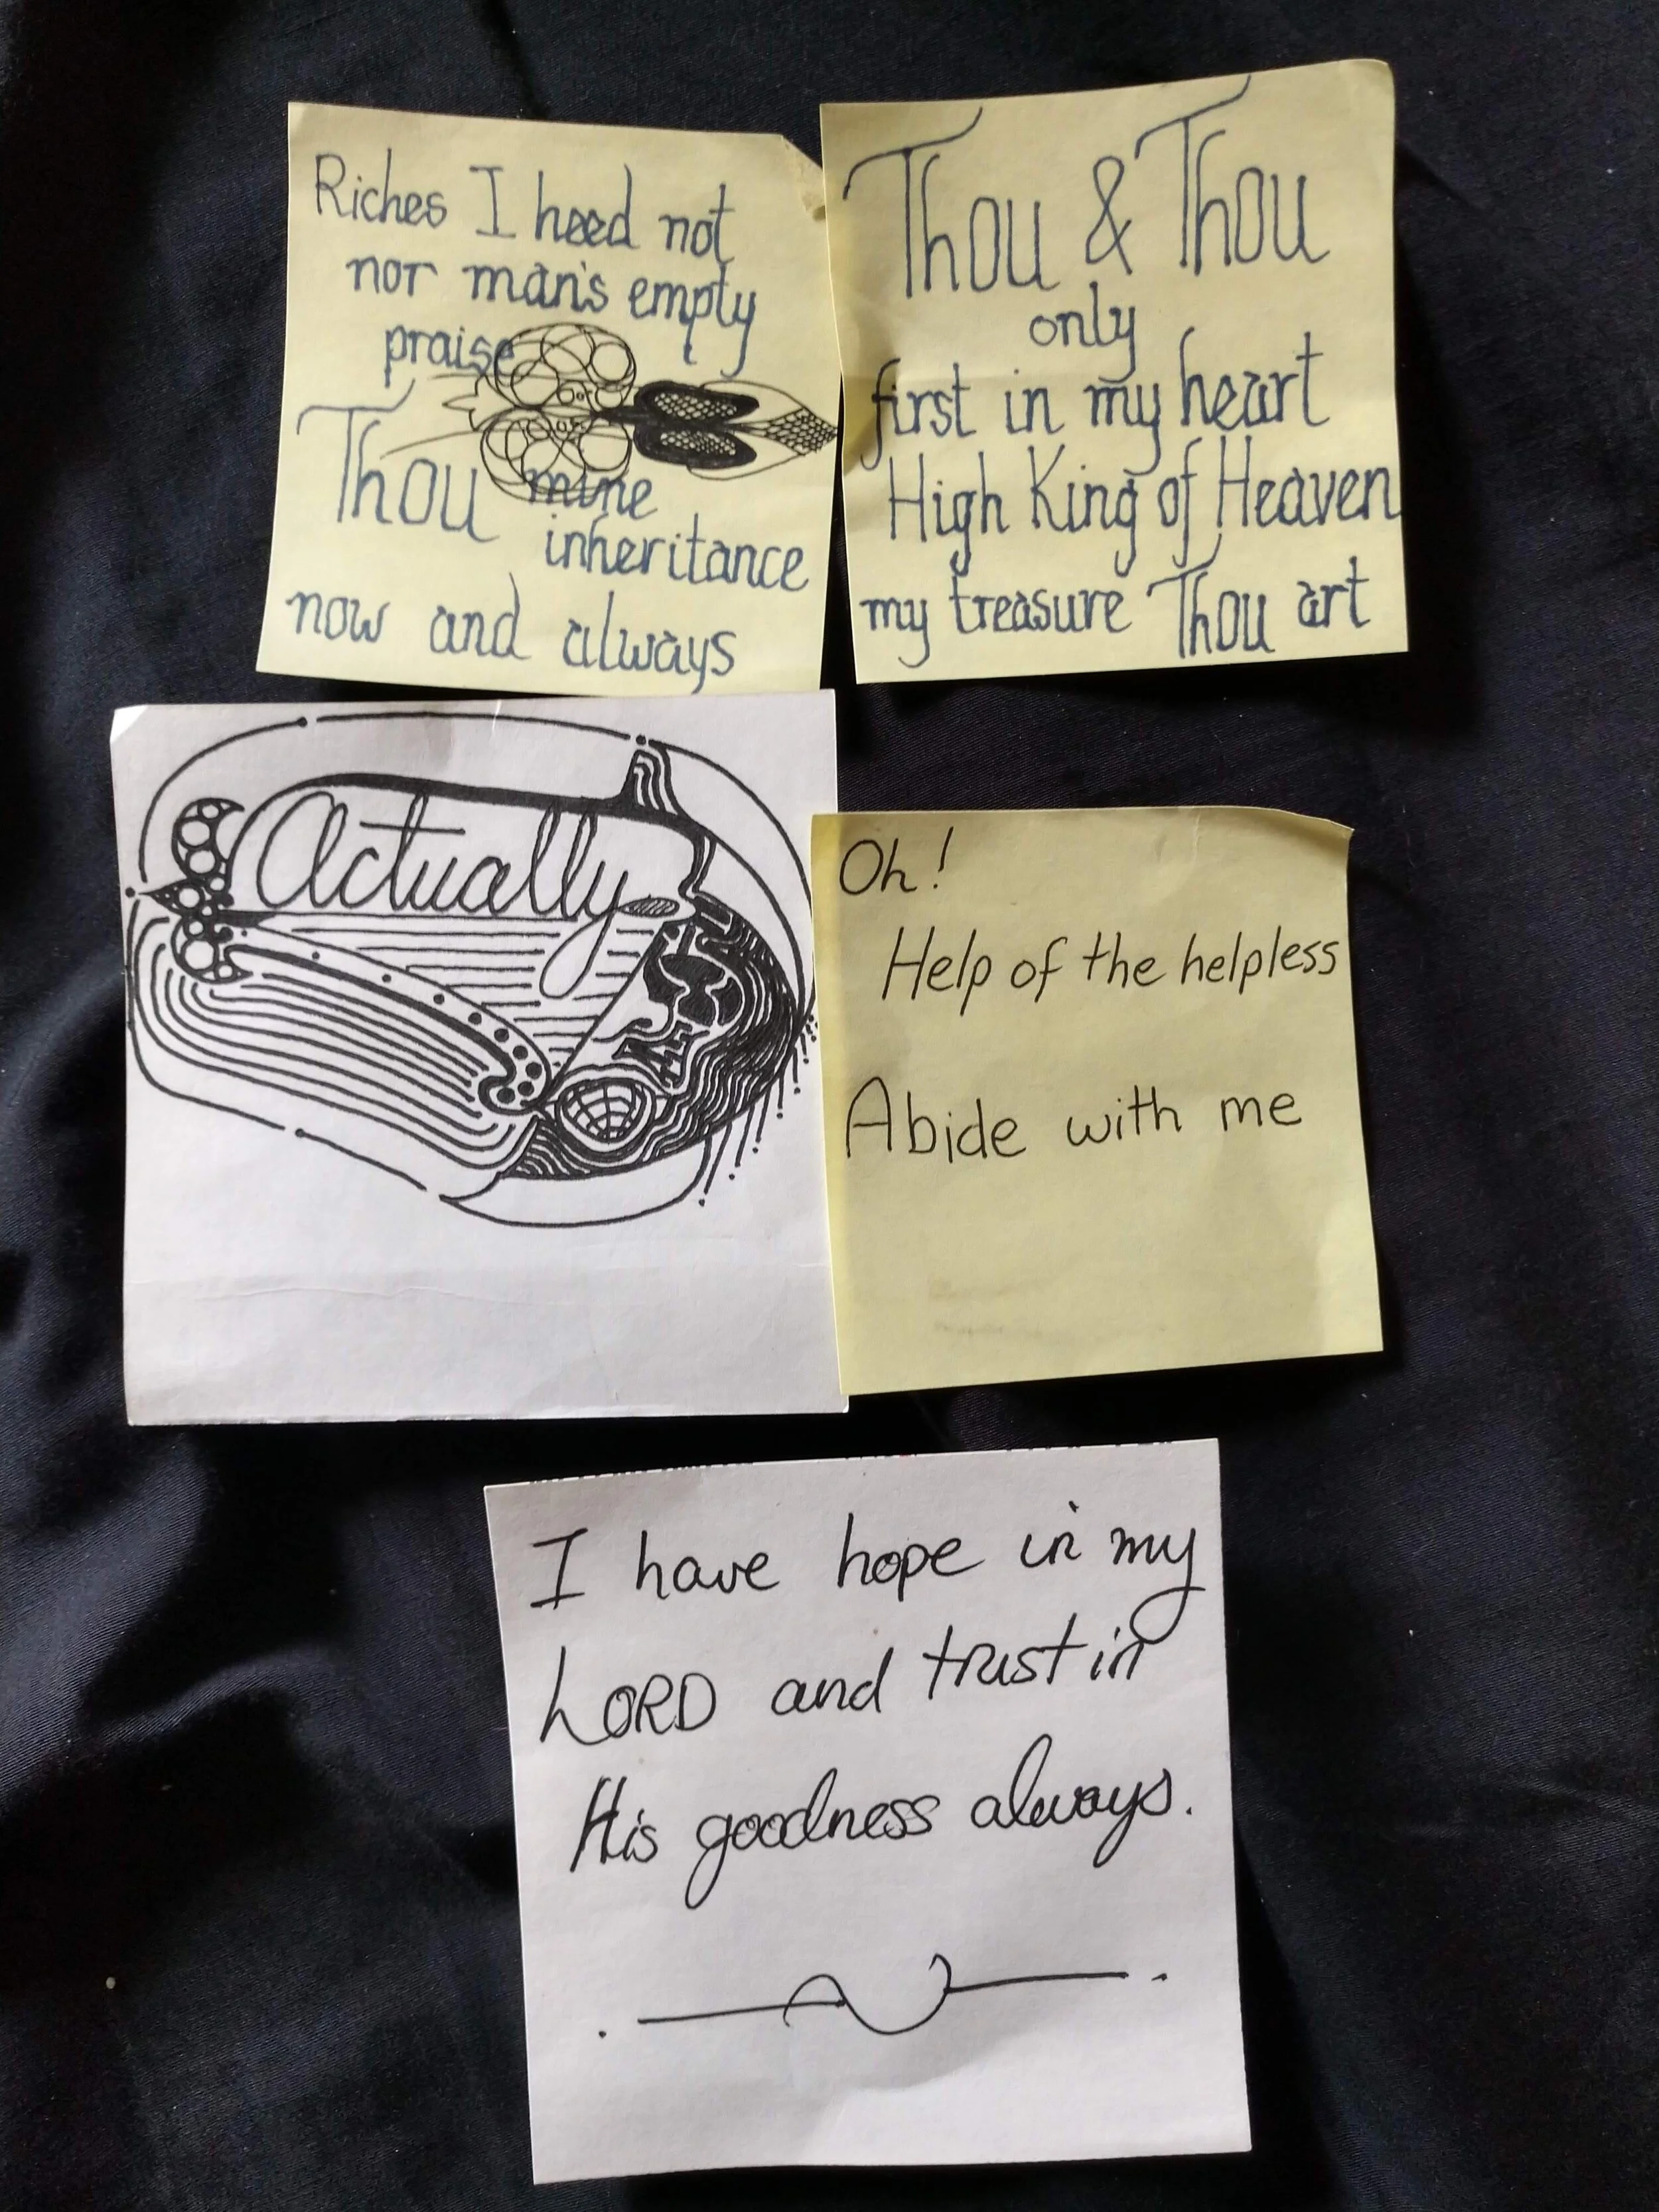 Riches I heed not
nor man's empty
praise
Thou mine
inheritance
now and always
Thou & Thou
only
first in my heart
High King of Heaven
my treasure Thou art
Actually
Oh!
Help of the helpless
Abide with me
I have hope in my
LORD and trust in
His goodness always.